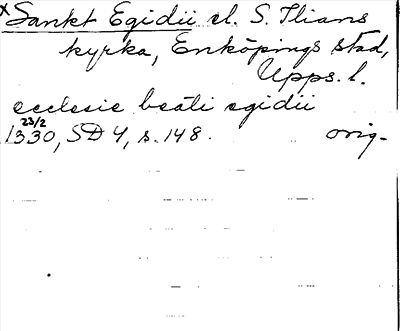 x Sankt Egidii el. S. Ilians
kyrka, Enköpings stad,
Upps. l.
ecclesie beati egidii
23/2
1330, SD 4, s. 148. orig.